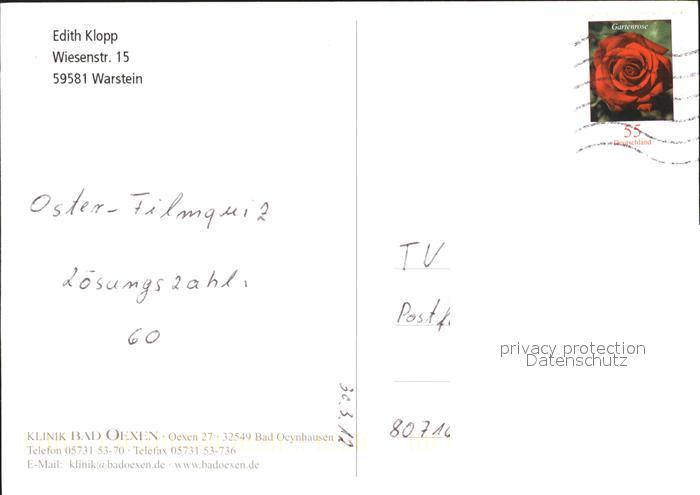 Edith Klopp
Wiesenstr. 15
59581 Warstein
Gartenrose
55
Deutschland
Oster-Filmquiz
Lösungszahl:
60
TV
Postf
80710
30.3.12
privacy protection
Datenschutz
KLINIK BAD OEXEN · Oexen 27 · 32549 Bad Oeynhausen
Telefon 05731 53-70 · Telefax 05731 53-736
E-Mail: klinik@badoexen.de · www.badoexen.de